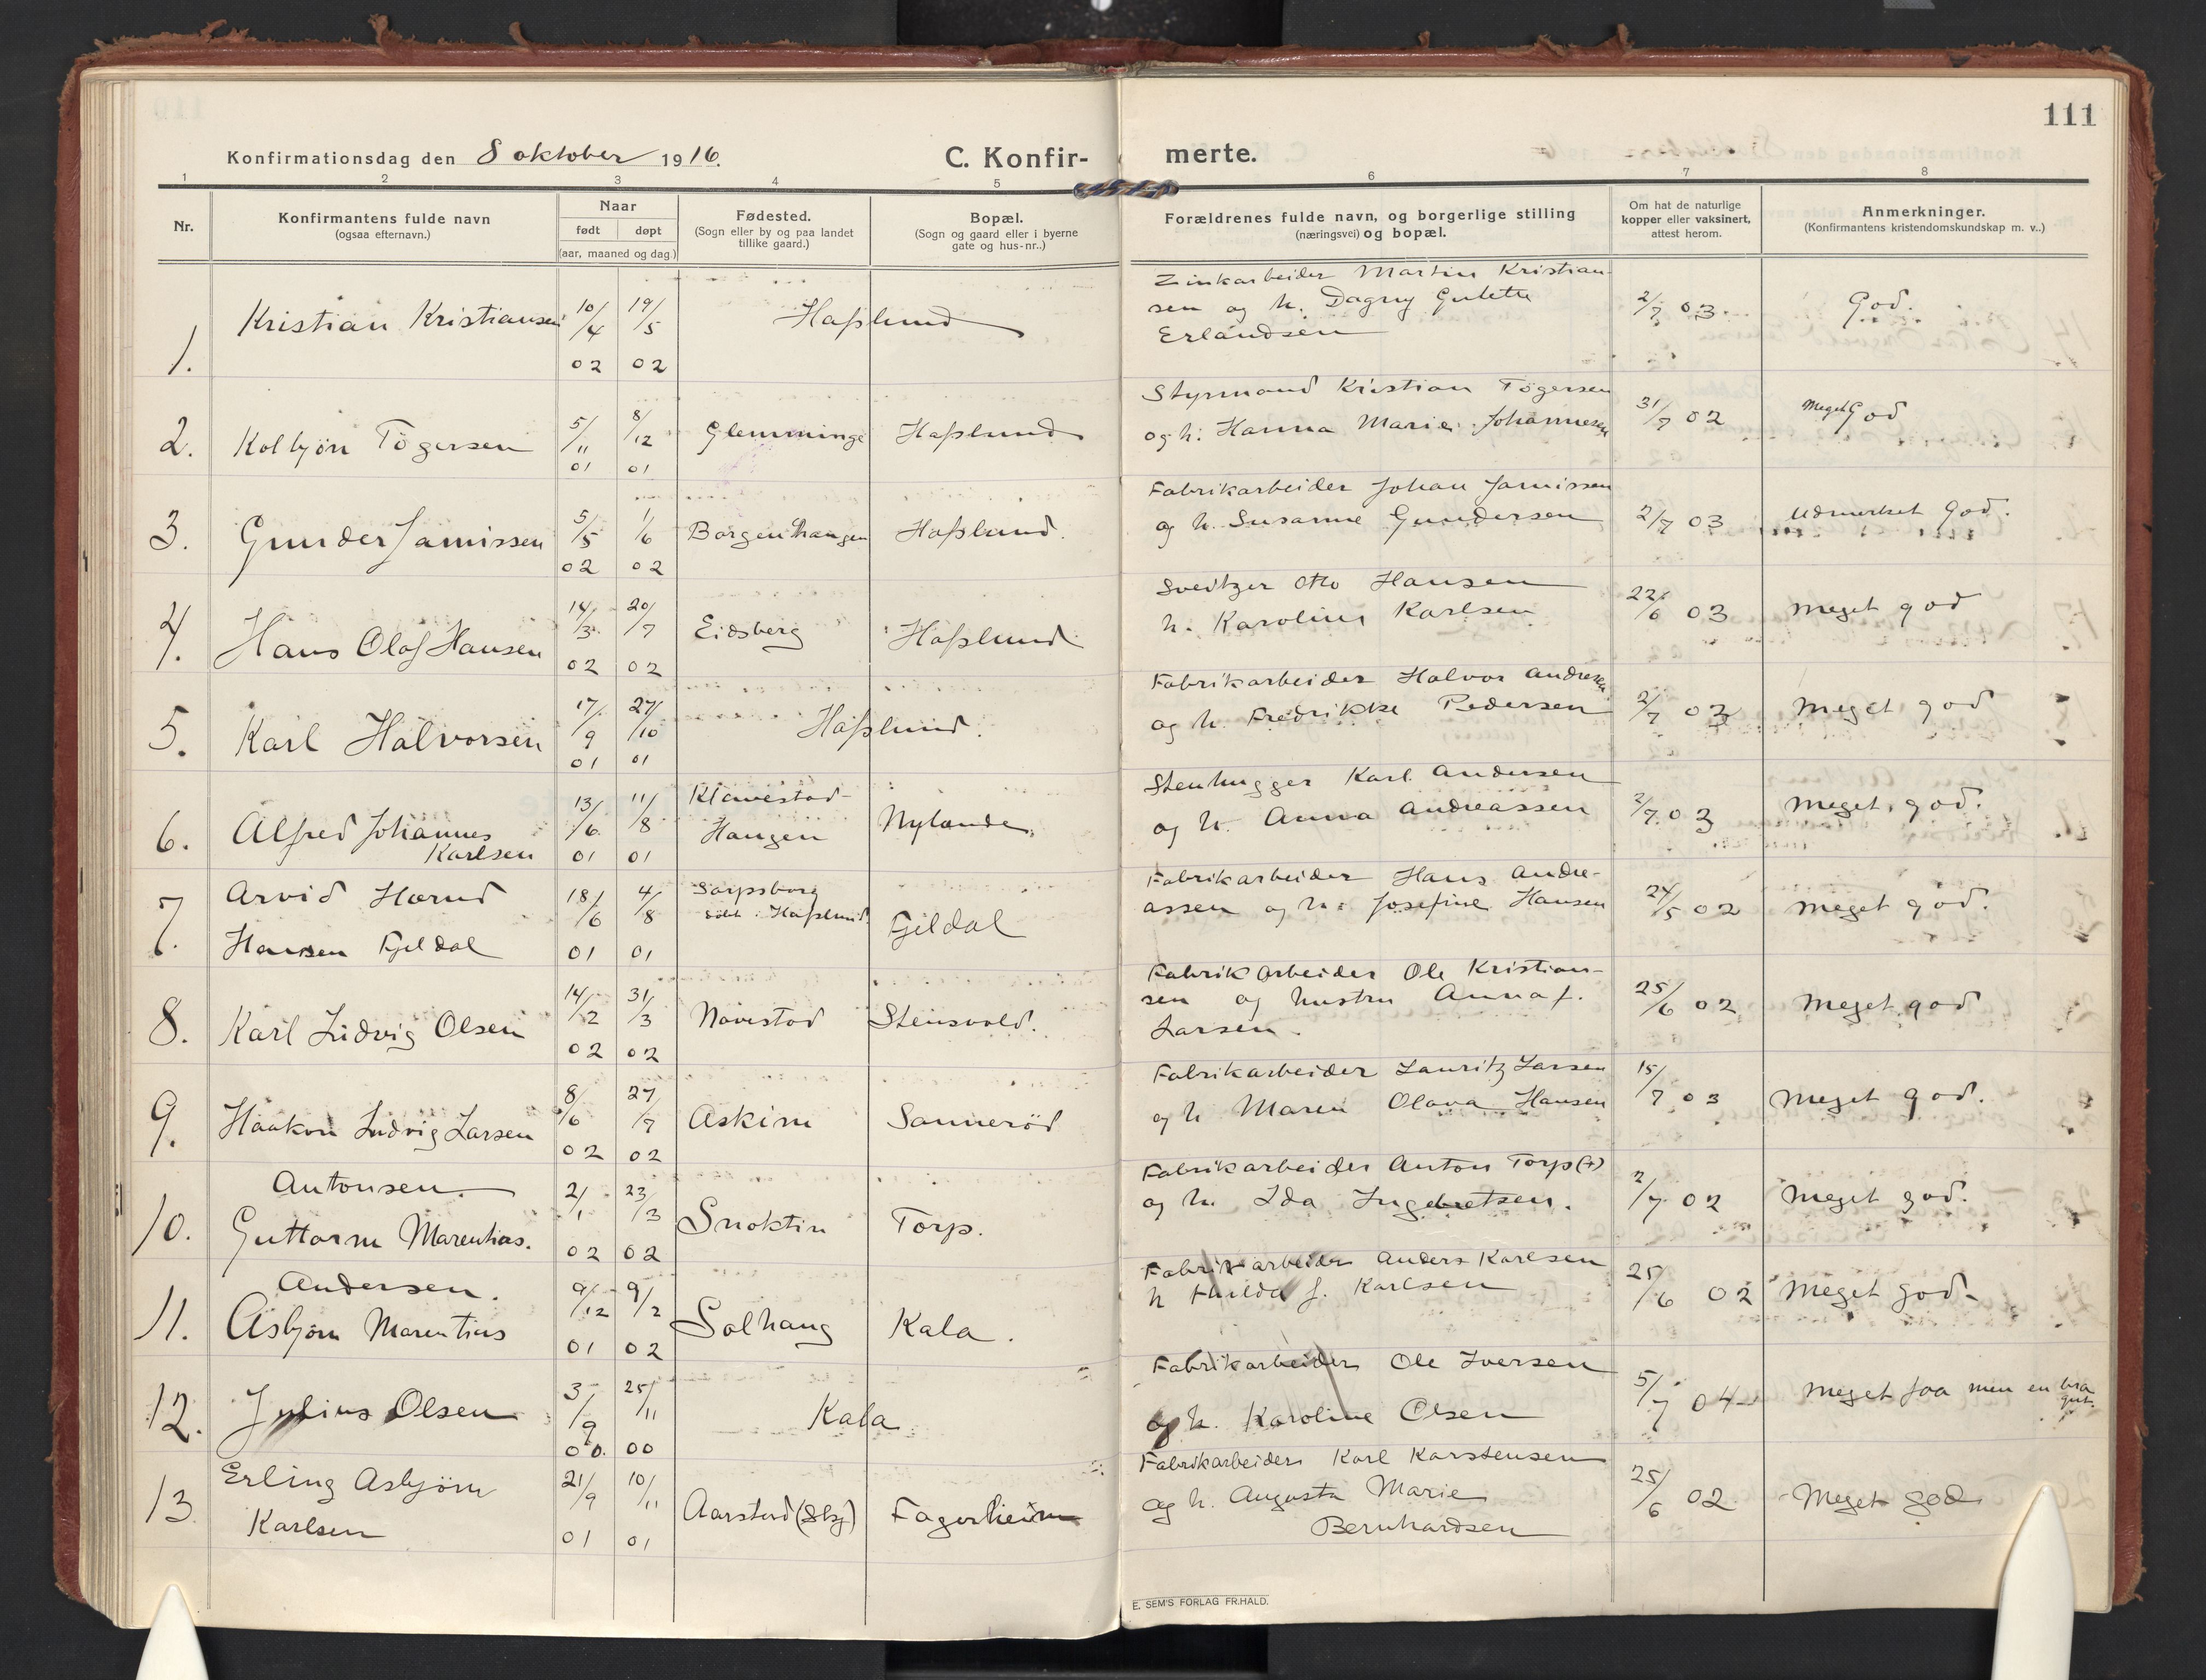 111
Konfirmationsdag den 8 oktober 1916. C. Konfirmerte.
1 2 3 4 5 6 7 8
Nr.
Konfirmantens fulde navn
(ogsaa efternavn.)
Naar
født døpt
(aar, maaned og dag.)
Fødested.
(Sogn eller by og paa landet
tillike gaard.)
Bopæl.
(Sogn og gaard eller i byerne
gate og hus-nr..)
Forældrenes fulde navn, og borgerlige stilling
(næringsvei) og bopæl.
Om hat de naturlige
kopper eller vaksinert,
attest herom.
Anmerkninger.
(Konfirmantens kristendomskundskap m. v..)
1. Kristian Kristiansen 10/4 02 19/5 02 Haſslund
Zinkarbeider Martin Kristian-
sen og h. Dagny Gulette
Erlandsen
2/7 03. God.
2. Kolbjön Tögersen 5/11 01 8/12 01 Glemminge Haſslund
Styrmand Kristian Tögersen
og h. Hanna Marie Johannesen
31/7 02 Meget God
3. Gunder Jamissen 5/5 02 1/6 02 Borgenhaugen Haſslund.
Fabrikarbeider Johan Jamissen
og h. Susanne Gundersen
2/7 03 Udmerket God.
4. Hans Olaf Hansen 14/3 02 20/7 02 Eidsberg Haſslund
Sveitzer Otto Hansen
h. Karoline Karlsen
22/6 03 meget god
5. Karl Halvorsen 17/9 01 27/10 01 Haſslund.
Fabrikarbeider Halvor Andresen
og h. Fredrikke Pedersen
2/7 02 Meget god
6. Alfred Johannes
Karlsen
13/6 01 11/8 01
Klavestad-
Haugen
Nylande.
Stenhugger Karl Andersen
og h. Anna Andreassen
2/7 03 Meget god.
7. Arvid Harud
Hansen Fjeldal
18/6 01 4/8 01
Sarpsborg
döbt i Haſslund
Fjeldal
Fabrikarbeider Hans Andre-
assen og h. Josefine Hansen
24/5 02 meget god.
8. Karl Ludvig Olsen 14/2 02 31/3 02 Navestad Stensvold.
Fabrikarbeider Ole Kristian-
sen og hustru Anna f.
Larsen.
25/6 02 Meget god
9. Haakon Ludvig Larsen 8/6 02 27/7 02 Askim Sannerød
Fabrikarbeider Lauritz Larsen
og h Maren Olava Hansen
15/7 03 Meget god.
10. Antonsen.
Guttorm Marenhas.
2/1 02 23/3 02 Snoktin Torp.
Fabrikarbeider Anton Torp(+)
og h. Ida Ingebretsen.
2/7 02 Meget god.
11. Andersen.
Asbjørn Marentius
9/12 01 9/2 02 Solhaug Kala.
Fabrikarbeider Anders Karlsen
h Thilda J. Karlsen
25/6 02 Meget god-
12. Julius Olsen 3/9 00. 25/11 00 Kala
Fabrikarbeider Ole Iversen
og h. Karoline Olsen
5/7 04 Meget faa men en bra
gut.
13. Erling Asbjørn
Karlsen
21/9 01 10/11 01 Aarstad (Sbg) Fagerheim
Fabrikarbeider Karl Karstensen
og h. Augusta Marie
Bernhardsen
25/6 02. Meget god
E. SEM'S FORLAG FR.HALD.